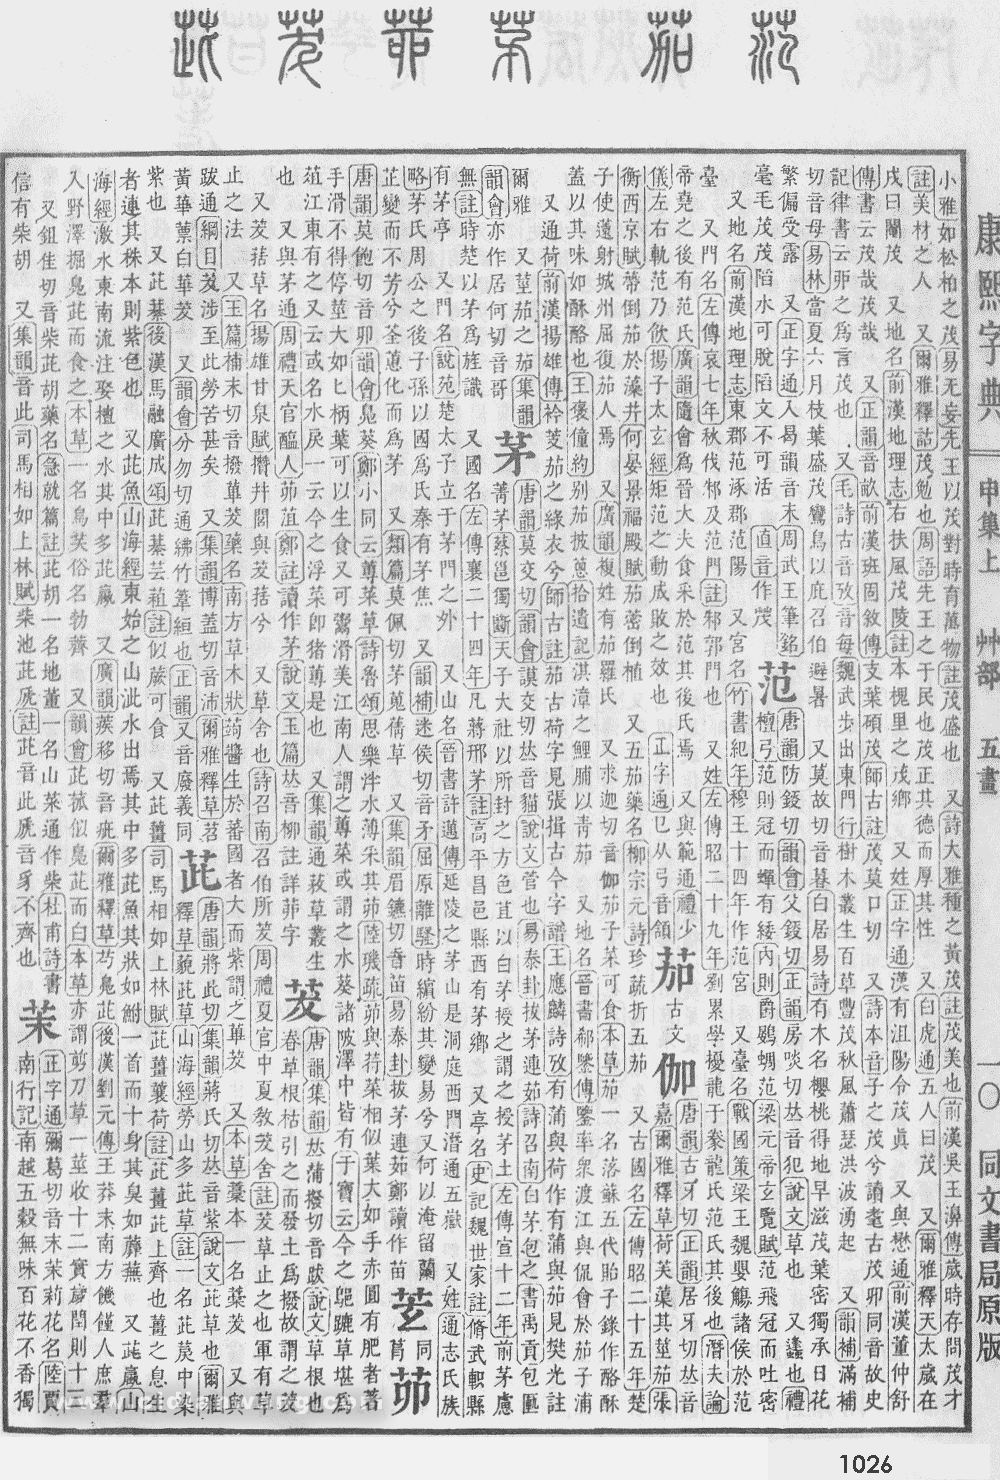 康熙字典 申集上 艸部 五畫 一〇 同文書局原版
小雅如松柏之茂易无妄先王以茂對時育萬物註茂盛也 又詩大雅種之黃茂註茂美也前漢吳王濞傳歲時存問茂才
註美材之人 又爾雅釋詁茂勉也周語先王之于民也茂正其德而厚其性 又白虎通五人曰茂 又爾雅釋天太歲在
戊曰閹茂 又地名前漢地理志右扶風茂陵註本槐里之茂鄉 又姓正字通漢有沮陽令茂眞 又與懋通前漢董仲舒
傳書云茂哉茂哉 又正韻音畝前漢班固敘傳支葉碩茂師古註茂莫口切 又詩本音子之茂兮讀耄古茂卯同音故史
記律書云卯之爲言茂也 又毛詩古音攷音每魏武步出東門行樹木叢生百草豐茂秋風蕭瑟洪波湧起 又韻補滿補
切音母易林當夏六月枝葉盛茂鸞鳥以庇召伯避暑 又莫故切音暮白居易詩有木名櫻桃得地早滋茂葉密獨承日花
繁偏受露 又正字通入曷韻音末周武王筆銘
毫毛茂茂陷水可脫陷文不可活 直音作𦱌
范
唐韻防錽切韻會父錽切正韻房啖切𠀤音犯說文草也 又蠭也禮
檀弓范則冠而蟬有緌內則爵鷃蜩范梁元帝玄覽賦范飛冠而吐密
又地名前漢地理志東郡范涿郡范陽 又宮名竹書紀年穆王十四年作范宮 又臺名戰國策梁王魏嬰觴諸侯於范
臺 又門名左傳哀七年秋伐邾及范門註邾郭門也 又姓左傳昭二十九年劉累學擾龍于豢龍氏范氏其後也潛夫論
帝堯之後有范氏廣韻隨會爲晉大夫食采於范其後氏焉 又與範通禮少
儀左右軌范乃飮揚子太玄經矩范之動成敗之效也 正字通㔾从弓音頷
茄
古文
伽
唐韻古牙切正韻居牙切𠀤音
嘉爾雅釋草荷芙蕖其莖茄張
衡西京賦蔕倒茄於藻井何晏景福殿賦茄蔤倒植 又五茄藥名柳宗元詩珍蔬折五茄 又古國名左傳昭二十五年楚
子使薳射城州屈復茄人焉 又廣韻複姓有茄羅氏 又求迦切音伽茄子菜可食本草茄一名落蘇五代貽子錄作酪酥
蓋以其味如酥酪也王褒僮約別茄披蔥拾遺記淇漳之鯉脯以靑茄 又地名晉書郗鑒傳鑒率衆渡江與侃會於茄子浦
又通荷前漢揚雄傳衿芰茄之綠衣兮師古註茄古荷字見張揖古今字譜王應麟詩攷有蒲與荷作有蒲與茄見樊光註
爾雅 又莖茄之茄集韻
韻會亦作居何切音哥
茅
唐韻莫交切韻會謨交切𠀤音貓說文菅也易泰卦拔茅連茹詩召南白茅包之書禹貢包匭
菁茅蔡邕獨斷天子大社以所封之方色苴以白茅授之謂之授茅土左傳宣十二年前茅慮
無註時楚以茅爲旌識 又國名左傳襄二十四年凡蔣邢茅註高平昌邑縣西有茅鄕 又亭名史記魏世家註脩武軹縣
有茅亭 又門名說苑楚太子立于茅門之外 又山名晉書許邁傳延陵之茅山是洞庭西門潛通五嶽 又姓通志氏族
略茅氏周公之後子孫以國爲氏秦有茅焦 又韻補迷侯切音矛屈原離騷時繽紛其變易兮又何以淹留蘭
芷變而不芳兮荃蕙化而爲茅 又類篇莫佩切茅蒐蒨草 又集韻眉鑣切音苗易泰卦拔茅連茹鄭讀作苗
茤
同
芻
茆
唐韻莫飽切音卯韻會鳧葵鄭小同云蓴菜草詩魯頌思樂泮水薄采其茆陸璣疏茆與荇菜相似葉大如手赤圓有肥者著
手滑不得停莖大如匕柄葉可以生食又可鬻滑美江南人謂之蓴菜或謂之水葵諸陂澤中皆有于寶云今之䴙蹏草堪爲
菹江東有之又云或名水戾一云今之浮菜卽猪蓴是也 又集韻通菽草叢生
也 又與茅通周禮天官醢人茆菹鄭註讀作茅說文玉篇𠀤音柳 註詳茒字
茇
唐韻集韻𠀤蒲撥切音跋說文草根也
春草根枯引之而發土爲撥故謂之茇
又茇葀草名揚雄甘泉賦攢幷閭與茇葀兮 又草舍也詩召南召伯所茇周禮夏官中夏敎茇舍註茇草止之也軍有草
止之法 又玉篇補末切音撥蓽茇藥名南方草木狀蒟醬生於蕃國者大而紫謂之蓽茇 又本草藁本一名藁茇 又與
跋通綱目茇涉至此勞苦甚矣 又集韻博蓋切音沛爾雅釋草苕
黃華蔈白華茇 又韻會分勿切通紼竹篾絙也正韻又音廢義同
茈
唐韻將此切集韻蔣氏切𠀤音紫說文茈草也爾雅
釋草藐茈草山海經勞山多茈草註一名茈䓞中染
紫也 又茈綦後漢馬融廣成頌茈萁芸蒩註似蕨可食 又茈薑司馬相如上林賦茈薑蘘荷註茈薑茈上齊也薑之息生
者連其株本則紫色也 又茈魚山海經東始之山泚水出焉其中多茈魚其狀如鮒一首而十身其臭如蘼蕪 又茈蠃山
海經激水東南流注娶檀之水其中多茈蠃 又廣韻疾移切音疵爾雅釋草芍鳧茈後漢劉元傳王莽末南方饑僅人庶羣
入野澤掘鳧茈而食之本草一名烏芙俗名勃薺 又韻會茈菰似鳧茈而白本草亦謂剪刀草一莖收十二實歲閏則十三
又鉏佳切音柴茈胡藥名急就篇註茈胡一名地薰一名山菜通作柴杜甫詩書
信有柴胡 又集韻音此司馬相如上林賦柴池茈虒註茈音此虒音豸不齊也
茉
正字通彌葛切音末茉莉花名陸賈
南行記南越五穀無味百花不香獨
1026